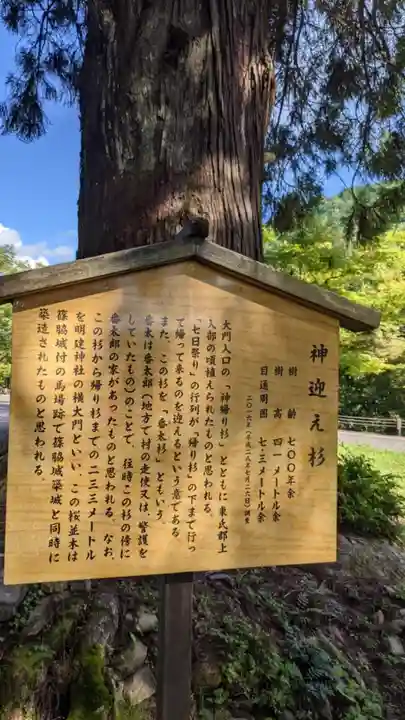 神迎え杉
樹齢 七〇〇年余
樹高 四一メートル余
目通周囲 七・五メートル余
二〇一六(平成二八年七月二六日)調査
大門入口の「神帰り杉」とともに東氏郡上
入部の頃植えられたものと思われる。
「七日祭り」の行列が「帰り杉」の下まで行っ
て帰って来るのを迎えるという意である
また、この杉を「番太杉」ともいう。
番太は番太郎(地方で村の走使又は、警護を
していたもの)のことで、往時この杉の傍に
番太郎の家があったものと思われる。なお、
この杉から帰り杉までの二三三メートル
を明建神社の横大門といい、この桜並木は
篠脇城付の馬場跡で篠脇城築城と同時に
築造されたものと思われる。